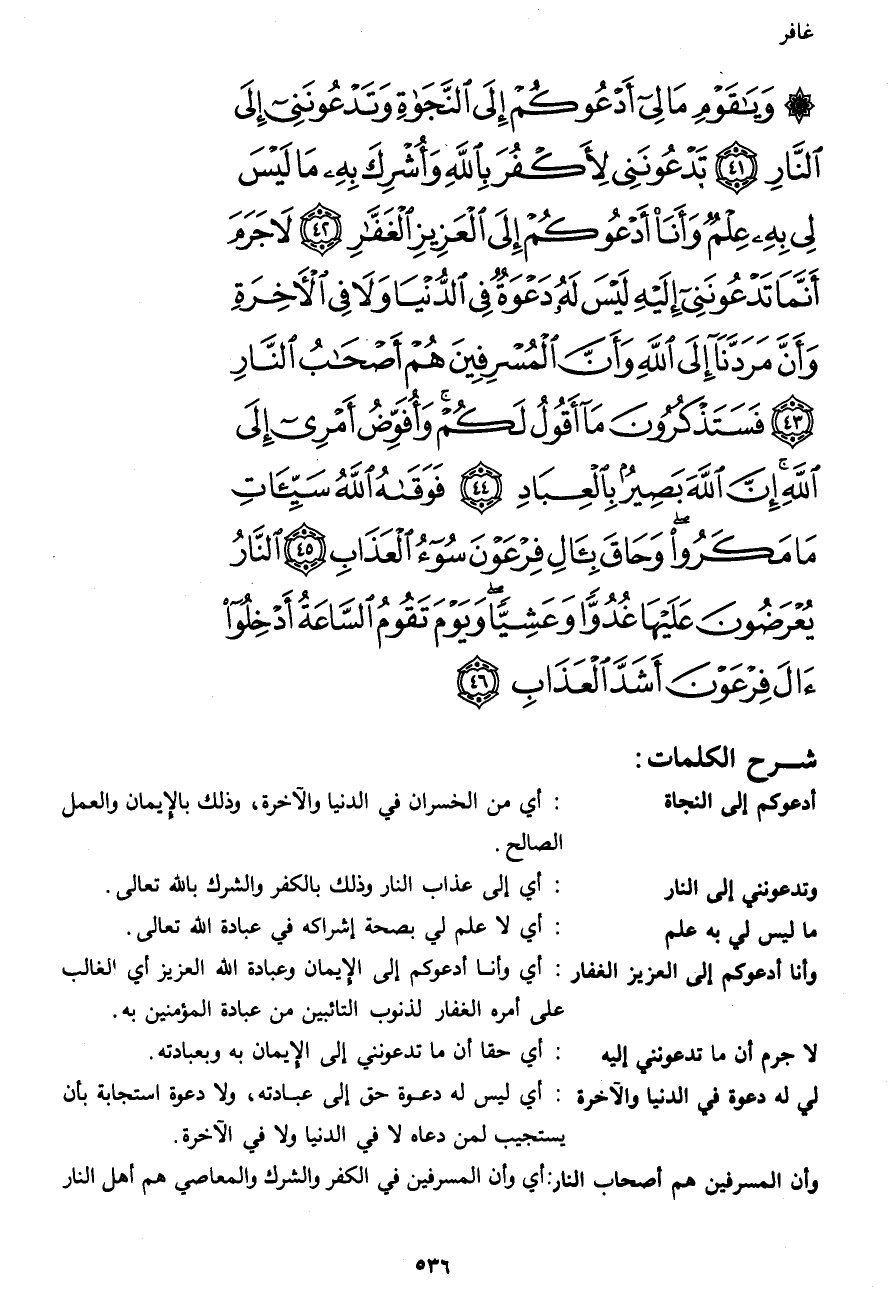 غافر
۞ وَيَٰقَوْمِ مَا لِىٓ أَدْعُوكُمْ إِلَى ٱلنَّجَوٰةِ وَتَدْعُونَنِىٓ إِلَى
ٱلنَّارِ ٤١ تَدْعُونَنِى لِأَكْفُرَ بِٱللَّهِ وَأُشْرِكَ بِهِۦ مَا لَيْسَ
لِى بِهِۦ عِلْمٌ وَأَنَا۠ أَدْعُوكُمْ إِلَى ٱلْعَزِيزِ ٱلْغَفَّٰرِ ٤٢ لَا جَرَمَ
أَنَّمَا تَدْعُونَنِىٓ إِلَيْهِ لَيْسَ لَهُۥ دَعْوَةٌ فِى ٱلدُّنْيَا وَلَا فِى ٱلْأَخِرَةِ
وَأَنَّ مَرَدَّنَآ إِلَى ٱللَّهِ وَأَنَّ ٱلْمُسْرِفِينَ هُمْ أَصْحَٰبُ ٱلنَّارِ
٤٣ فَسَتَذْكُرُونَ مَآ أَقُولُ لَكُمْ ۚ وَأُفَوِّضُ أَمْرِىٓ إِلَى
ٱللَّهِ ۚ إِنَّ ٱللَّهَ بَصِيرٌۢ بِٱلْعِبَادِ ٤٤ فَوَقَىٰهُ ٱللَّهُ سَيِّـَٔاتِ
مَا مَكَرُوا۟ ۖ وَحَاقَ بِـَٔالِ فِرْعَوْنَ سُوٓءُ ٱلْعَذَابِ ٤٥ ٱلنَّارُ
يُعْرَضُونَ عَلَيْهَا غُدُوًّا وَعَشِيًّا ۖ وَيَوْمَ تَقُومُ ٱلسَّاعَةُ أَدْخِلُوٓا۟
ءَالَ فِرْعَوْنَ أَشَدَّ ٱلْعَذَابِ ٤٦
شرح الكلمات :
أدعوكم إلى النجاة : أي من الخسران في الدنيا والآخرة، وذلك بالإيمان والعمل
الصالح.
وتدعونني إلى النار : أي إلى عذاب النار وذلك بالكفر والشرك بالله تعالى.
ما ليس لي به علم : أي لا علم لي بصحة إشراكه في عبادة الله تعالى.
وأنا أدعوكم إلى العزيز الغفار : أي وأنا أدعوكم إلى الإيمان وعبادة الله العزيز أي الغالب
على أمره الغفار لذنوب التائبين من عبادة المؤمنين به.
لا جرم أن ما تدعونني إليه : أي حقا أن ما تدعونني إلى الإيمان به وبعبادته.
لي له دعوة في الدنيا والآخرة : أي ليس له دعوة حق إلى عبادته، ولا دعوة استجابة بأن
يستجيب لمن دعاه لا في الدنيا ولا في الآخرة.
وأن المسرفين هم أصحاب النار: أي وأن المسرفين في الكفر والشرك والمعاصي هم أهل النار
٥٣٦